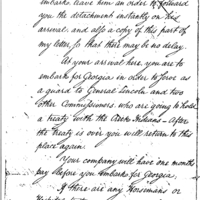 embarks leave him an order to forward
you the detachment instantly on his
arrival and also a copy of this part of
my letter, so that there may be no delay.
At your arrival here you are to
embark for Georgia in order to serve as
a guard to General Lincoln and two
other Commissioners who are going to hold
a treaty with the Creek Indians – after
the treaty is over you will return to this
place again.
Your company will have one months
pay before you embark for Georgia.
If there are any Horsemans or